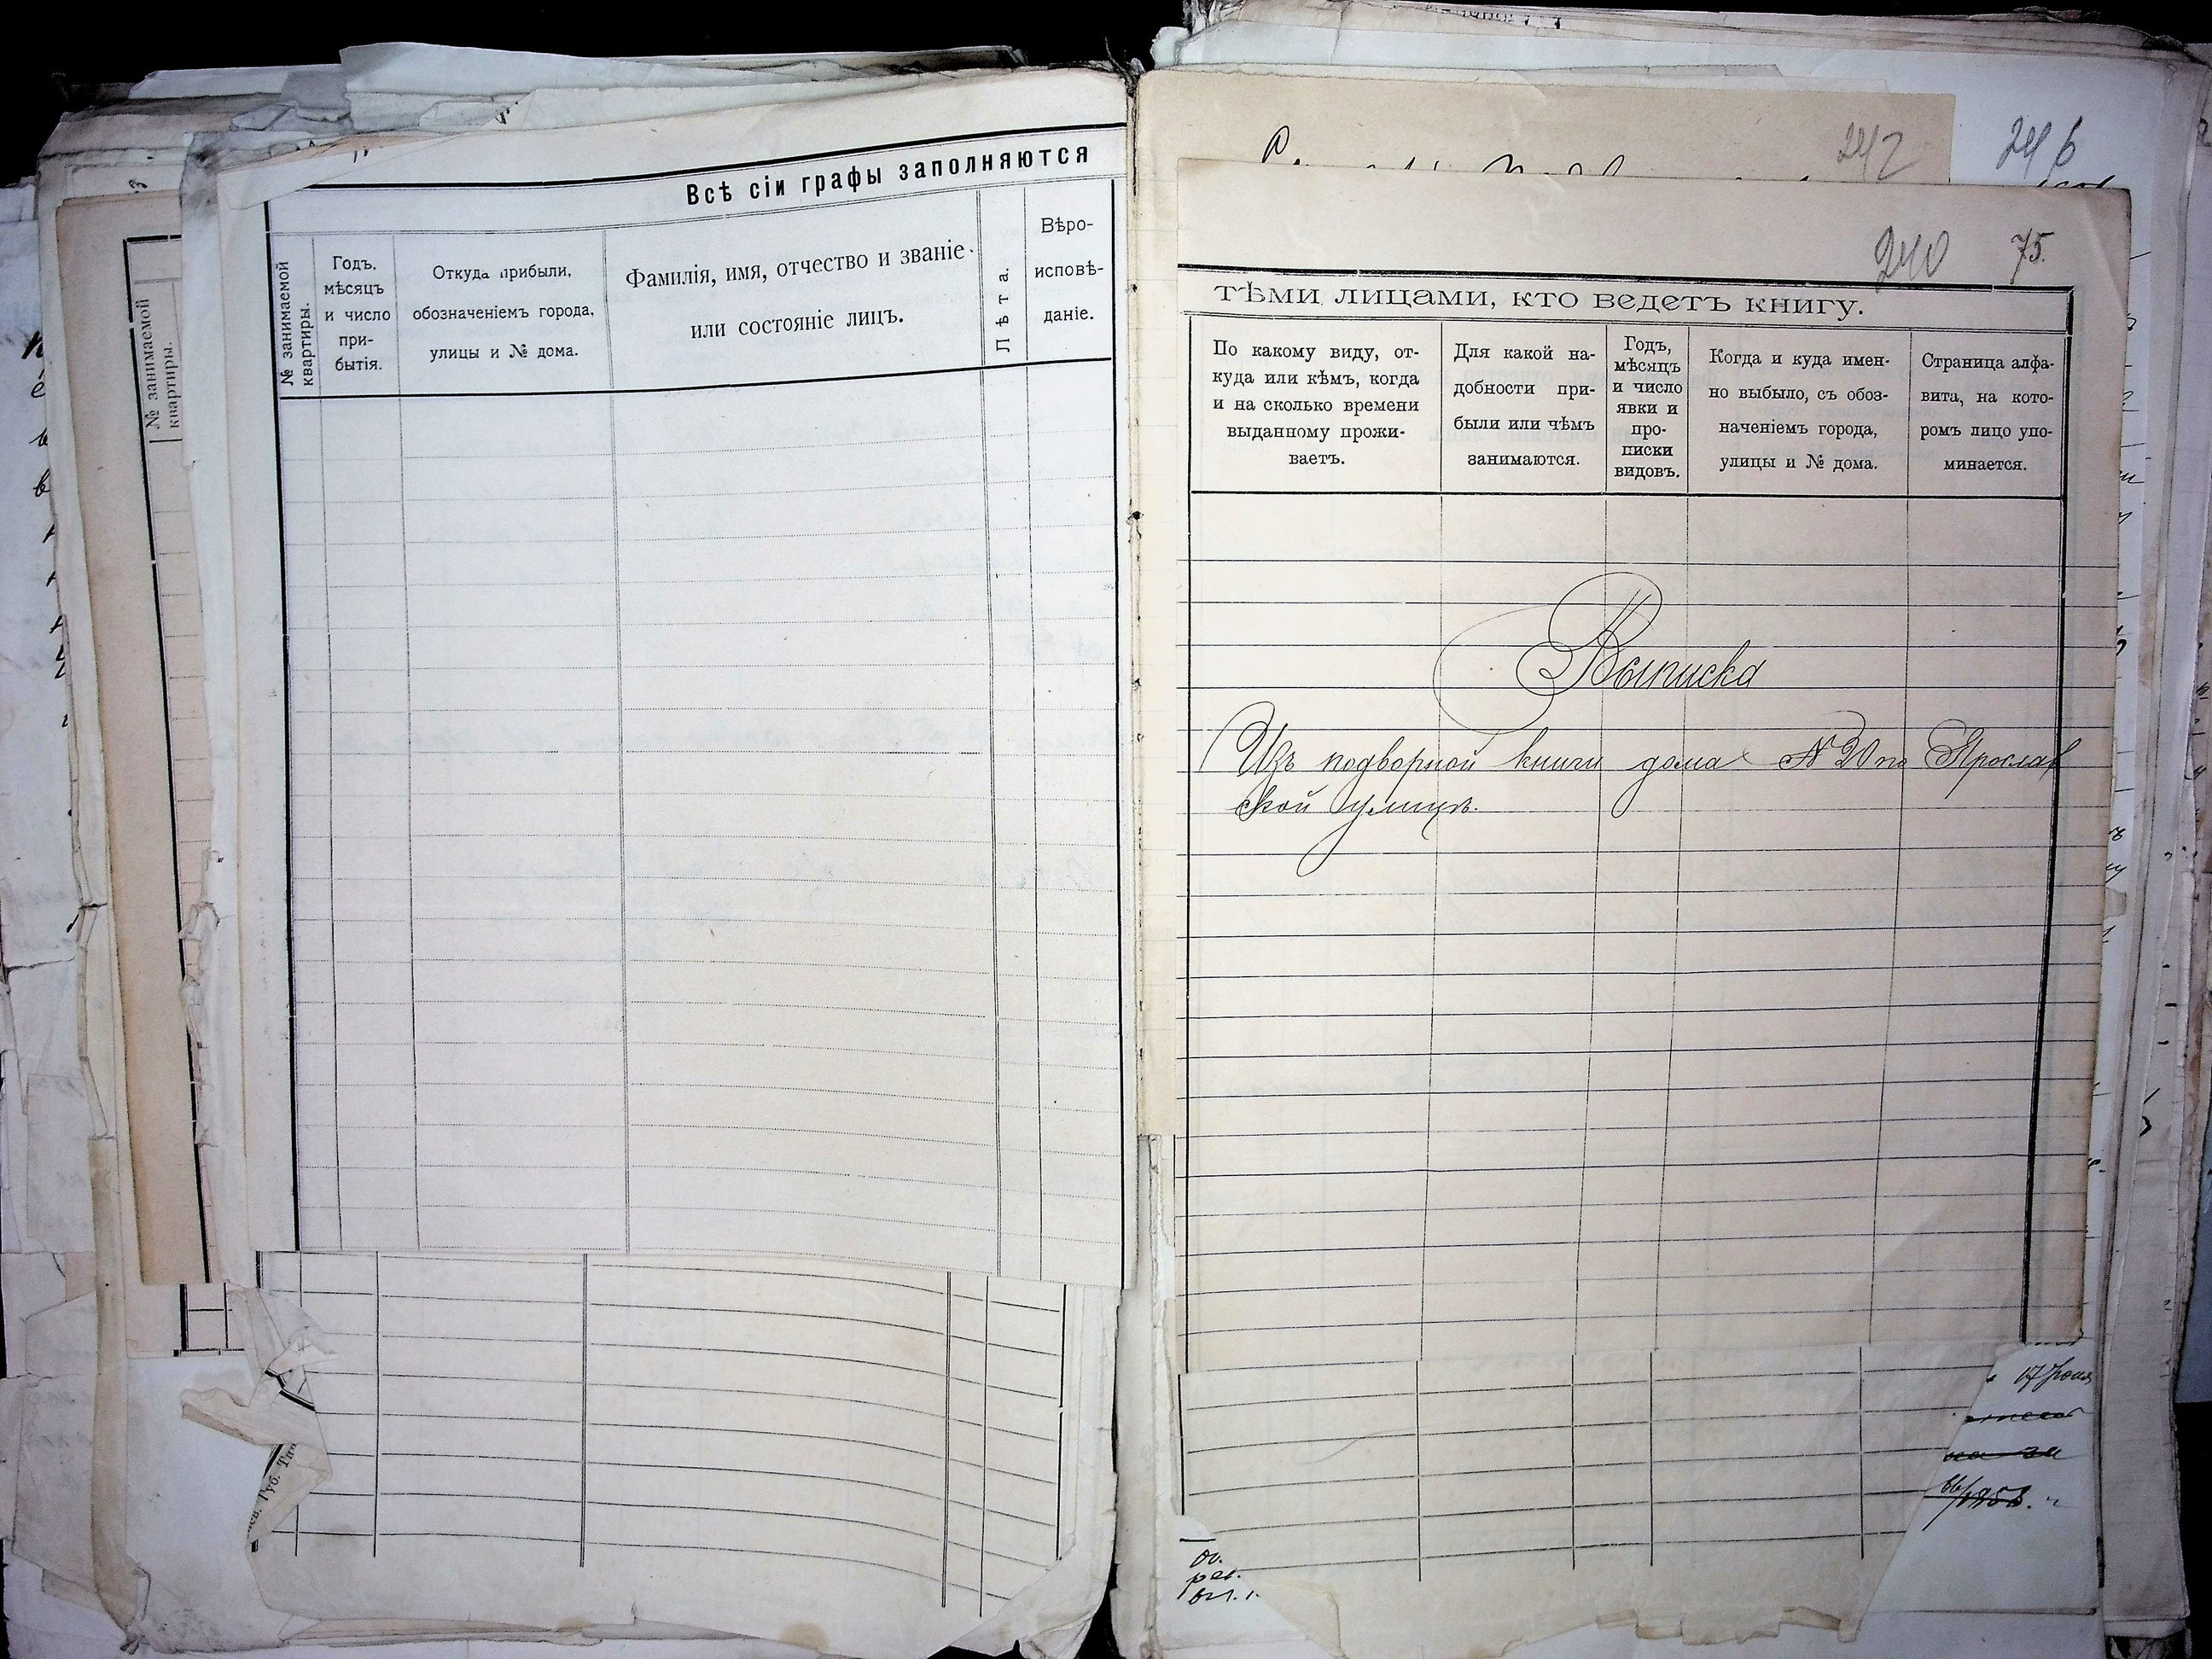 242
246
240
75.
Всѣ сіи графы заполняются
№ занимаемой
квартиры.
№ занимаемой
квартиры.
Годъ.
мѣсяцъ
и число
при-
бытія.
Откуда прибыли,
обозначеніемъ города,
улицы и № дома.
Фамилія, имя, отчество и званіе
или состояніе лицъ.
Лѣта.
Вѣро-
исповѣ-
даніе.
тѣми лицами, кто ведетъ книгу.
По какому виду, от-
куда или кѣмъ, когда
и на сколько времени
выданному прожи-
ваетъ.
Для какой на-
добности при-
были или чѣмъ
занимаются.
Годъ,
мѣсяцъ
и число
явки и
про-
писки
видовъ.
Когда и куда имен-
но выбыло, съ обоз-
наченіемъ города,
улицы и № дома.
Страница алфа-
вита, на кото-
ромъ лицо упо-
минается.
Выписка
Изъ подворной книги дома № 20 по Ярослав
ской улицѣ.
Губ.